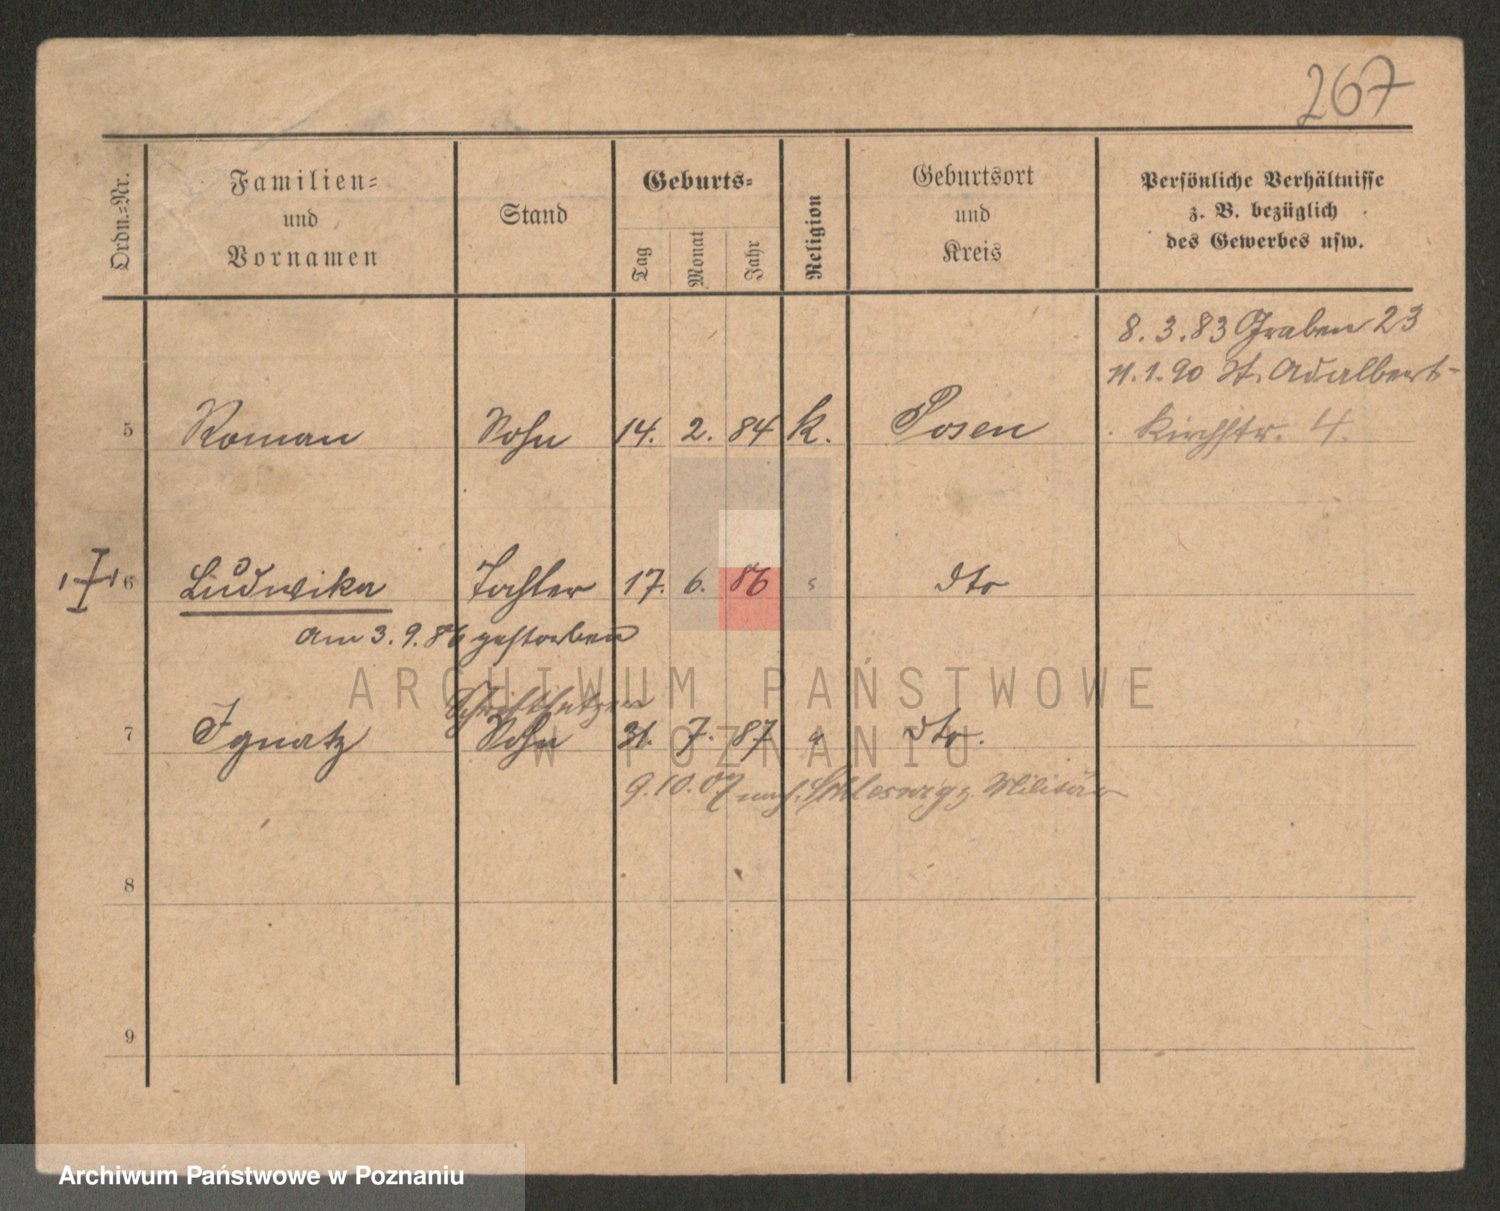 267
Ordn.=Nr.
Familien=
und
Vornamen
Stand
Geburts=
Tag
Monat
Jahr
Religion
Geburtsort
und
Kreis
Persönliche Verhältnisse
z. B. bezüglich
des Gewerbes usw.
8. 3. 83 Graben 23
11. 1. 90 St. Adalbert-
5 Roman Sohn 14. 2. 84 k. Posen Kirchstr. 4.
6 Ludwika Tochter 17. 6. 86 " dto
am 3. 9. 86 gestorben
Schriftsetzer
7 Ignatz Sohn 31. 7. 87 " dto.
9. 10. 07 nach Schleswig z. Militär
8
9
ARCHIWUM PAŃSTWOWE
W POZNANIU
Archiwum Państwowe w Poznaniu